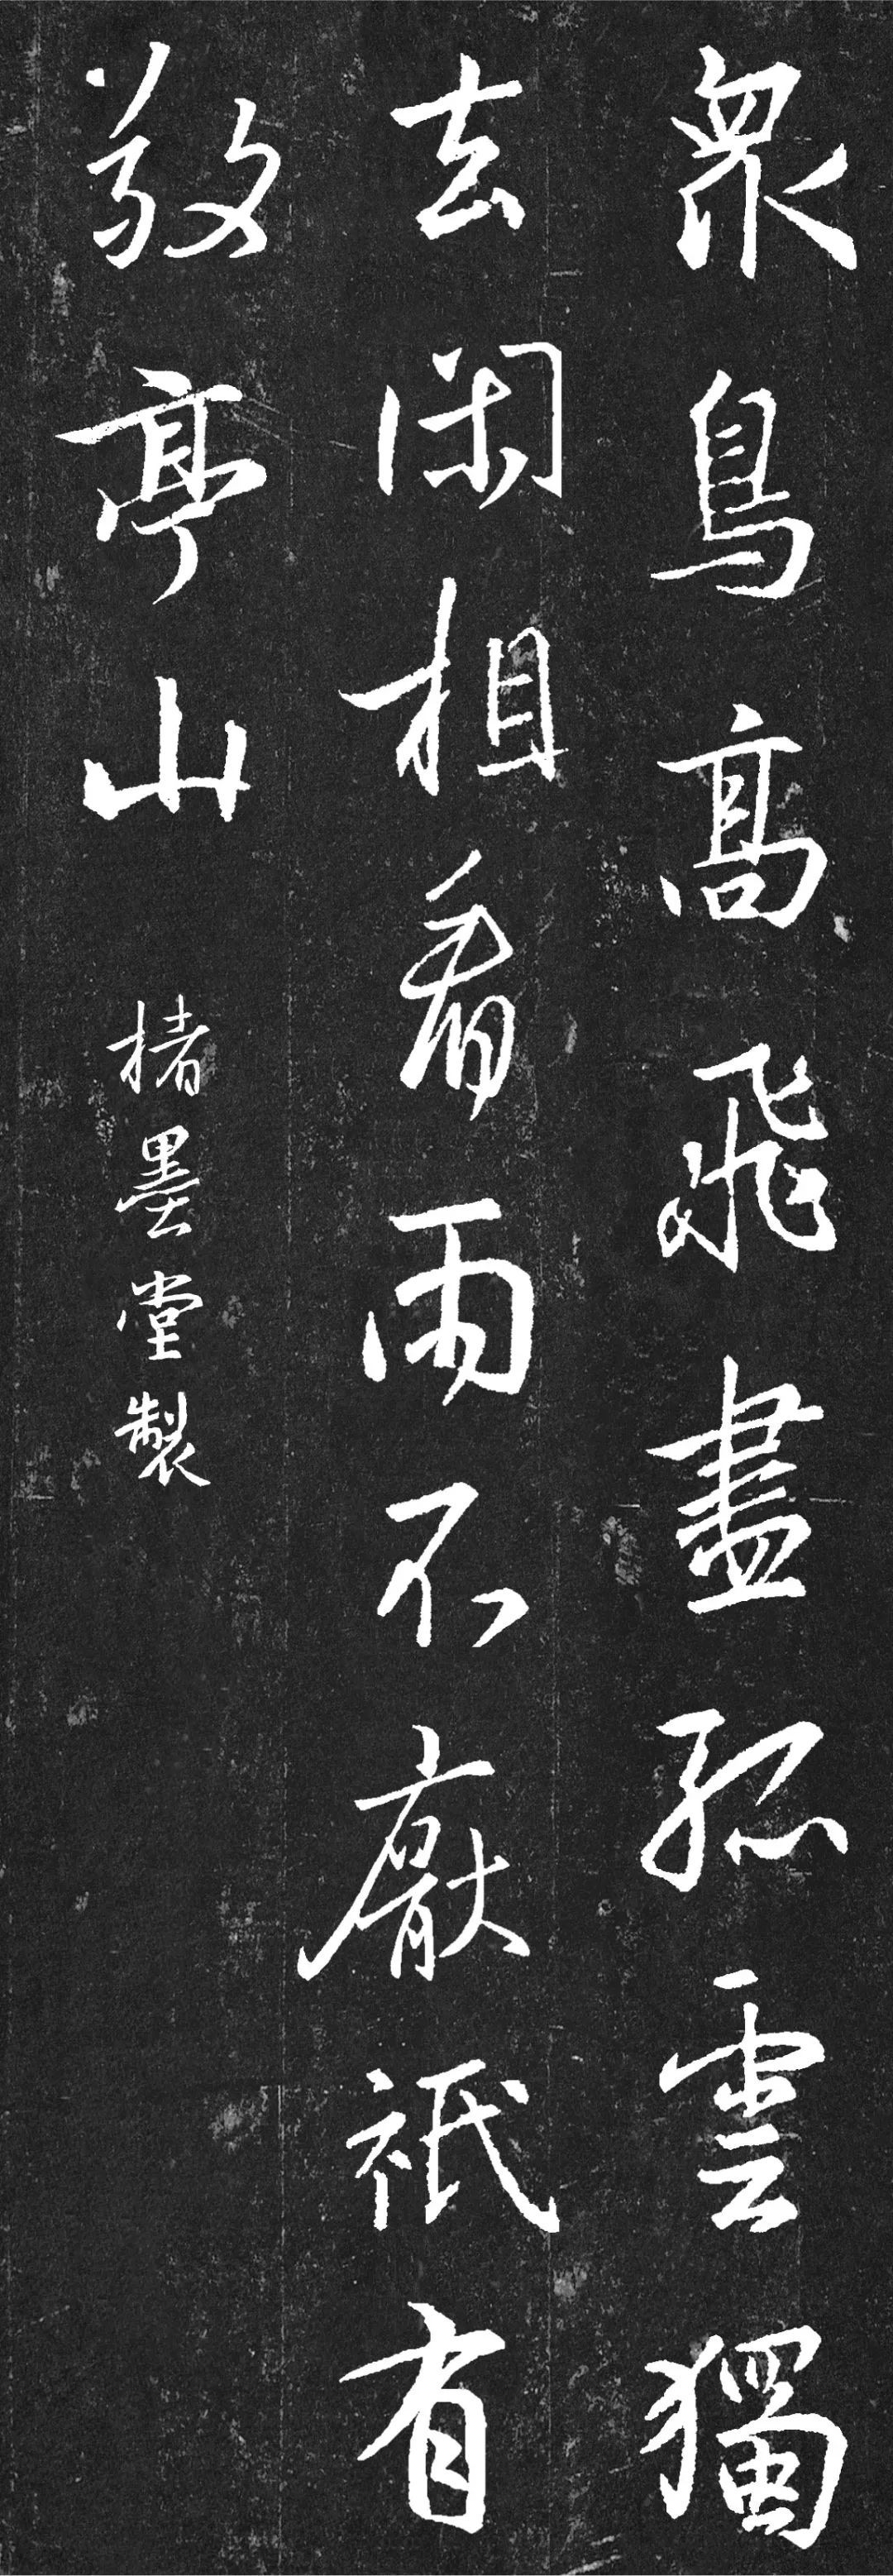 眾鳥高飛盡孤雲獨
去閑相看兩不厭祇有
敬亭山
楮墨堂製